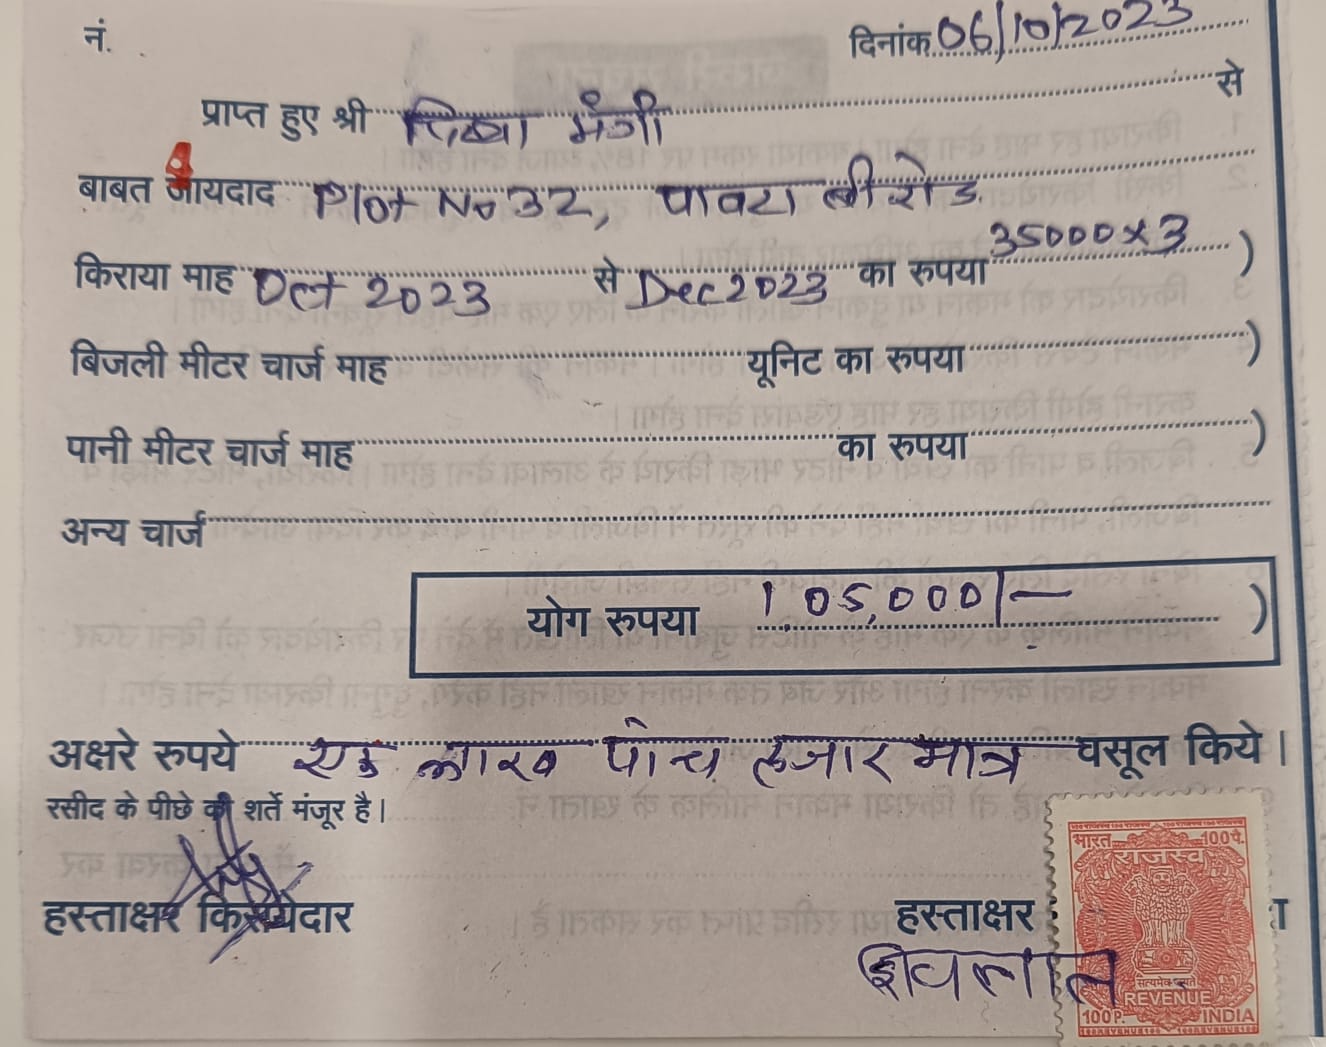 नं. दिनांक 06/10/2023
प्राप्त हुए श्री मंगी से
बाबत जायदाद Plot No 32, पावटा बी रोड.
किराया माह Oct 2023 से Dec 2023 का रुपया 35000 x 3 )
बिजली मीटर चार्ज माह यूनिट का रुपया )
पानी मीटर चार्ज माह का रुपया )
अन्य चार्ज
योग रुपया 1,05,000/- )
अक्षरे रुपये एक लाख पांच हजार मात्र वसूल किये।
रसीद के पीछे की शर्ते मंजूर है।
हस्ताक्षर किरायेदार हस्ताक्षर
शिवलाल
भारत 100पै.
राजस्व
सत्यमेव जयते
REVENUE
100P. INDIA